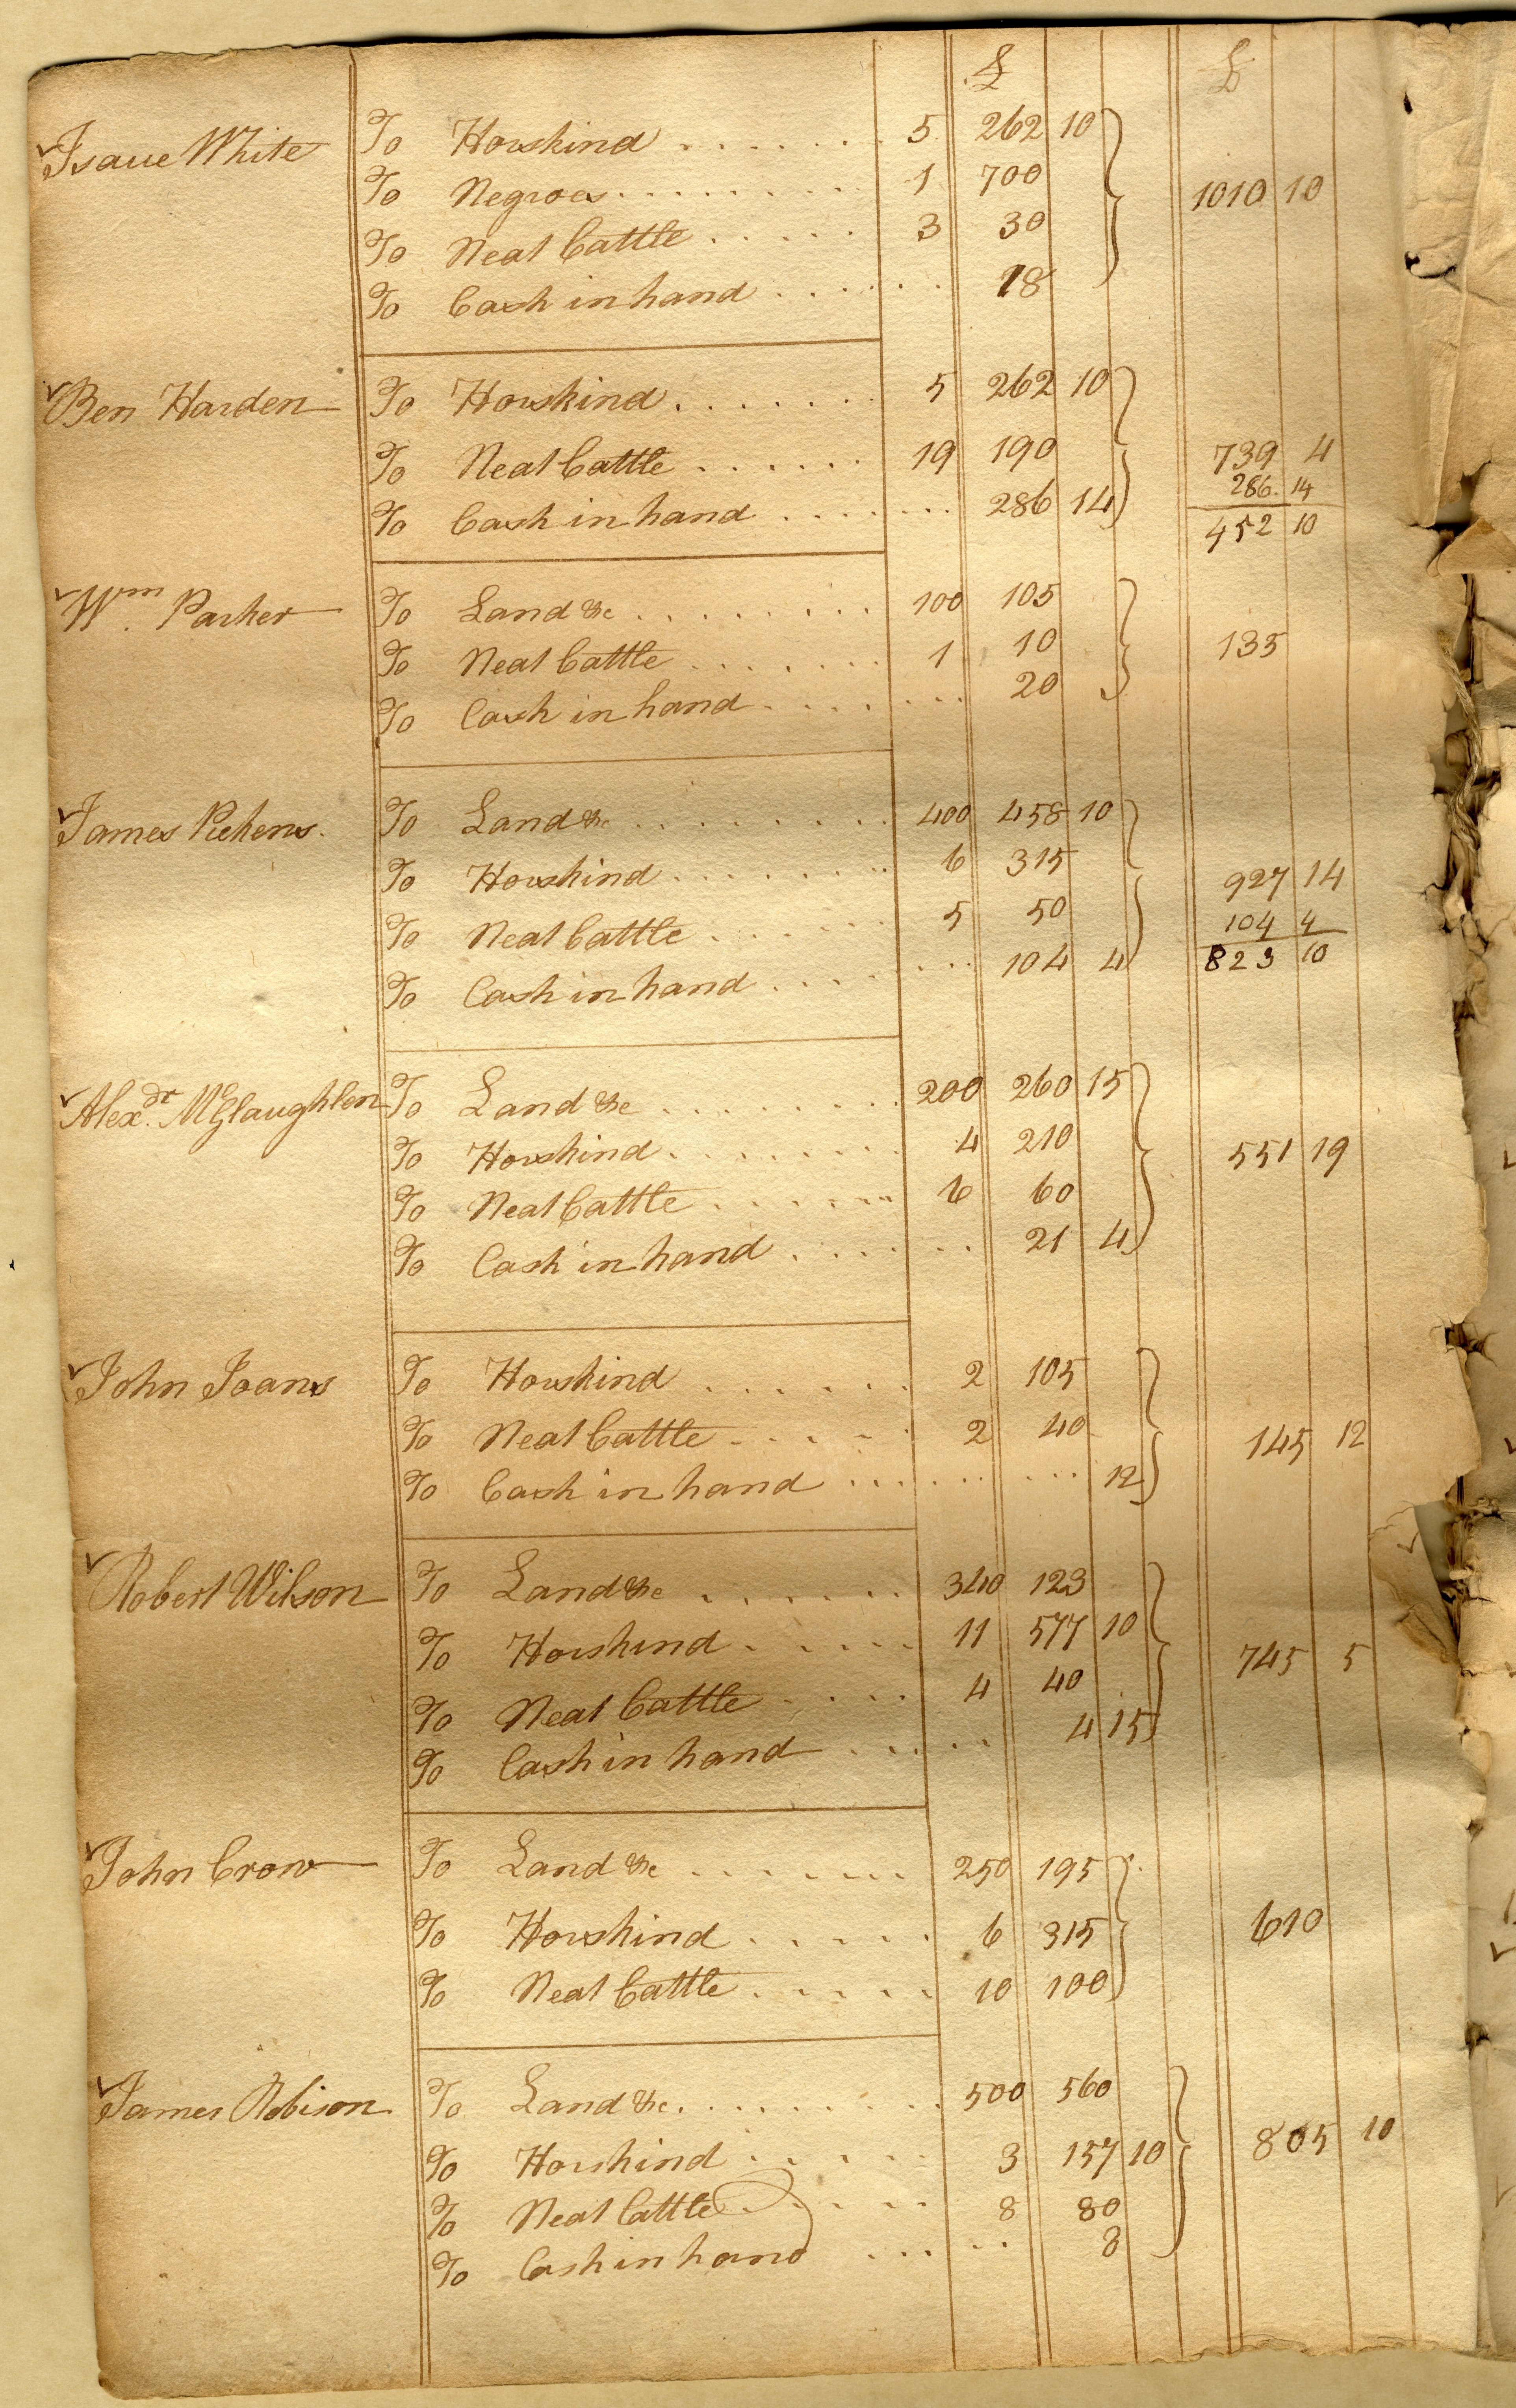 £ £
Isaue White To Horskind 5 262 10
To Negroes 1 700 1010 10
To Neat Cattle 3 30
To Cash in hand 18
Ben Harden To Horskind 5 262 10
To Neat Cattle 19 190 739 4
286 14
To Cash in hand 286 14 452 10
Wm. Parker To Land &c 100 105
To Neat Cattle 1 10 135
To Cash in hand 20
James Pickens To Land &c 400 458 10
To Horskind 6 315 927 14
To Neat Cattle 5 50 104 4
To Cash in hand 104 4 823 10
Alexdr. McGlaughlen To Land &c 200 260 15
To Horskind 4 210 551 19
To Neat Cattle 6 60
To Cash in hand 21 4
John Joans To Horskind 2 105
To Neat Cattle 2 40 145 12
To Cash in hand 12
Robert Wilson To Land &c 340 123
To Horskind 11 577 10 745 5
To Neat Cattle 4 40
To Cash in hand 4 15
John Crow To Land &c 250 195
To Horskind 6 315 610
To Neat Cattle 10 100
James Robison To Land &c 500 560
To Horskind 3 157 10 805 10
To Neat Cattle 8 80
To Cash in hand 8